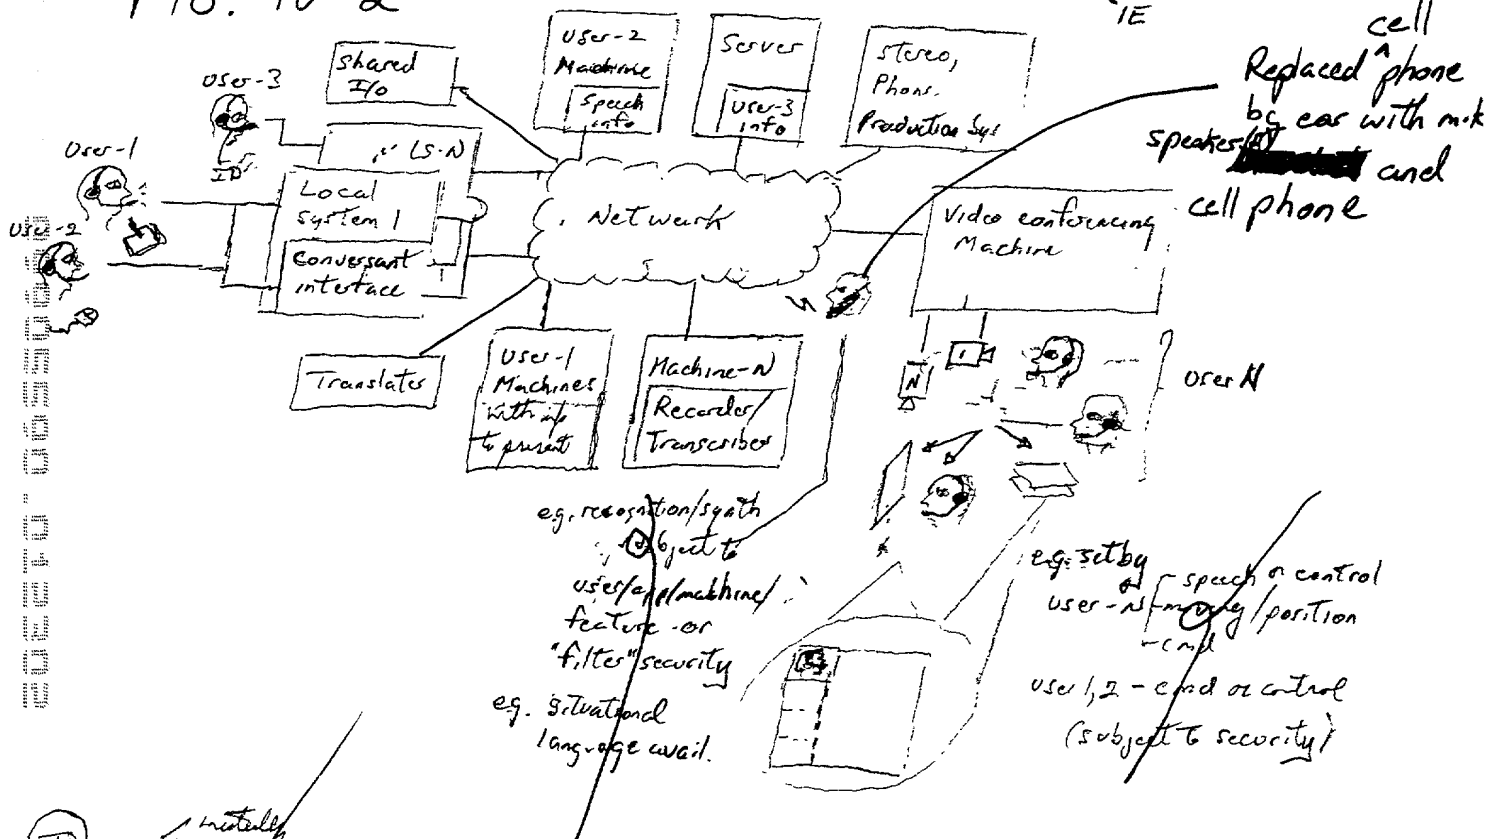 FIG. 10-2
IE
cell
Replaced ^ phone
by ear with mik
speaker(s)
and
cell phone
User-3
ID
User-1
User-2
Shared
I/O
LS-N
Local
System 1
Conversant
interface
User-2
Machine
Speech
info
Server
User-3
info
Stereo,
Phone.
Production Sys
Network
Video conferencing
Machine
Translater
User-1
Machines
with info
to present
Machine-N
Recorder/
Transcriber
1
N
User N
e.g. recognition/synth
subject to
user/app/machine/
feature -or
"filter" security
e.g. situational
language avail.
e.g. set by
speech or control
user-N - moving/position
- cmd
user 1,2 - cmd or control
(subject to security)